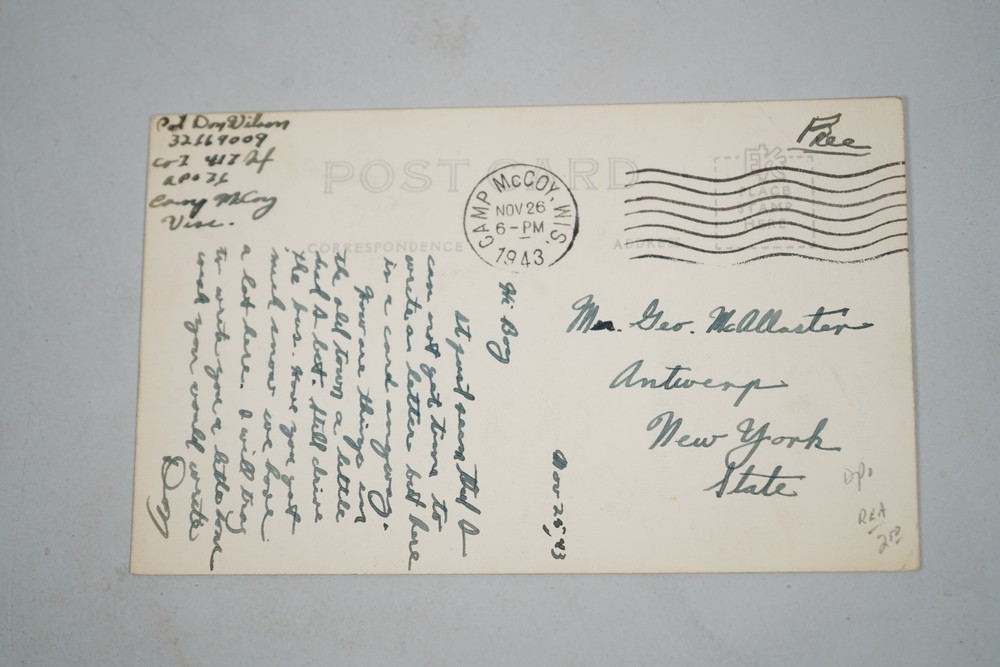 Pvt Doy Wilson
32669009
Co I 417 Inf
APO 76
Camp McCoy
Wisc.
Free
POST CARD
CORRESPONDENCE
ADDRESS
PLACE
STAMP
HERE
CAMP McCOY, WIS.
NOV 26
6-PM
1943
Mr. Geo. McAllaster
Antwerp
New York
State
Nov 25, 43
Hi Boy
It just seems that I
can not get time to
write a letter but here
is a card anyway.
How are things in
the old town a little
but I bet. Still drive
the bus. Have you got
much snow we have
a lot here. I will try
to write you a little
wish you would write
Doy
REA
200